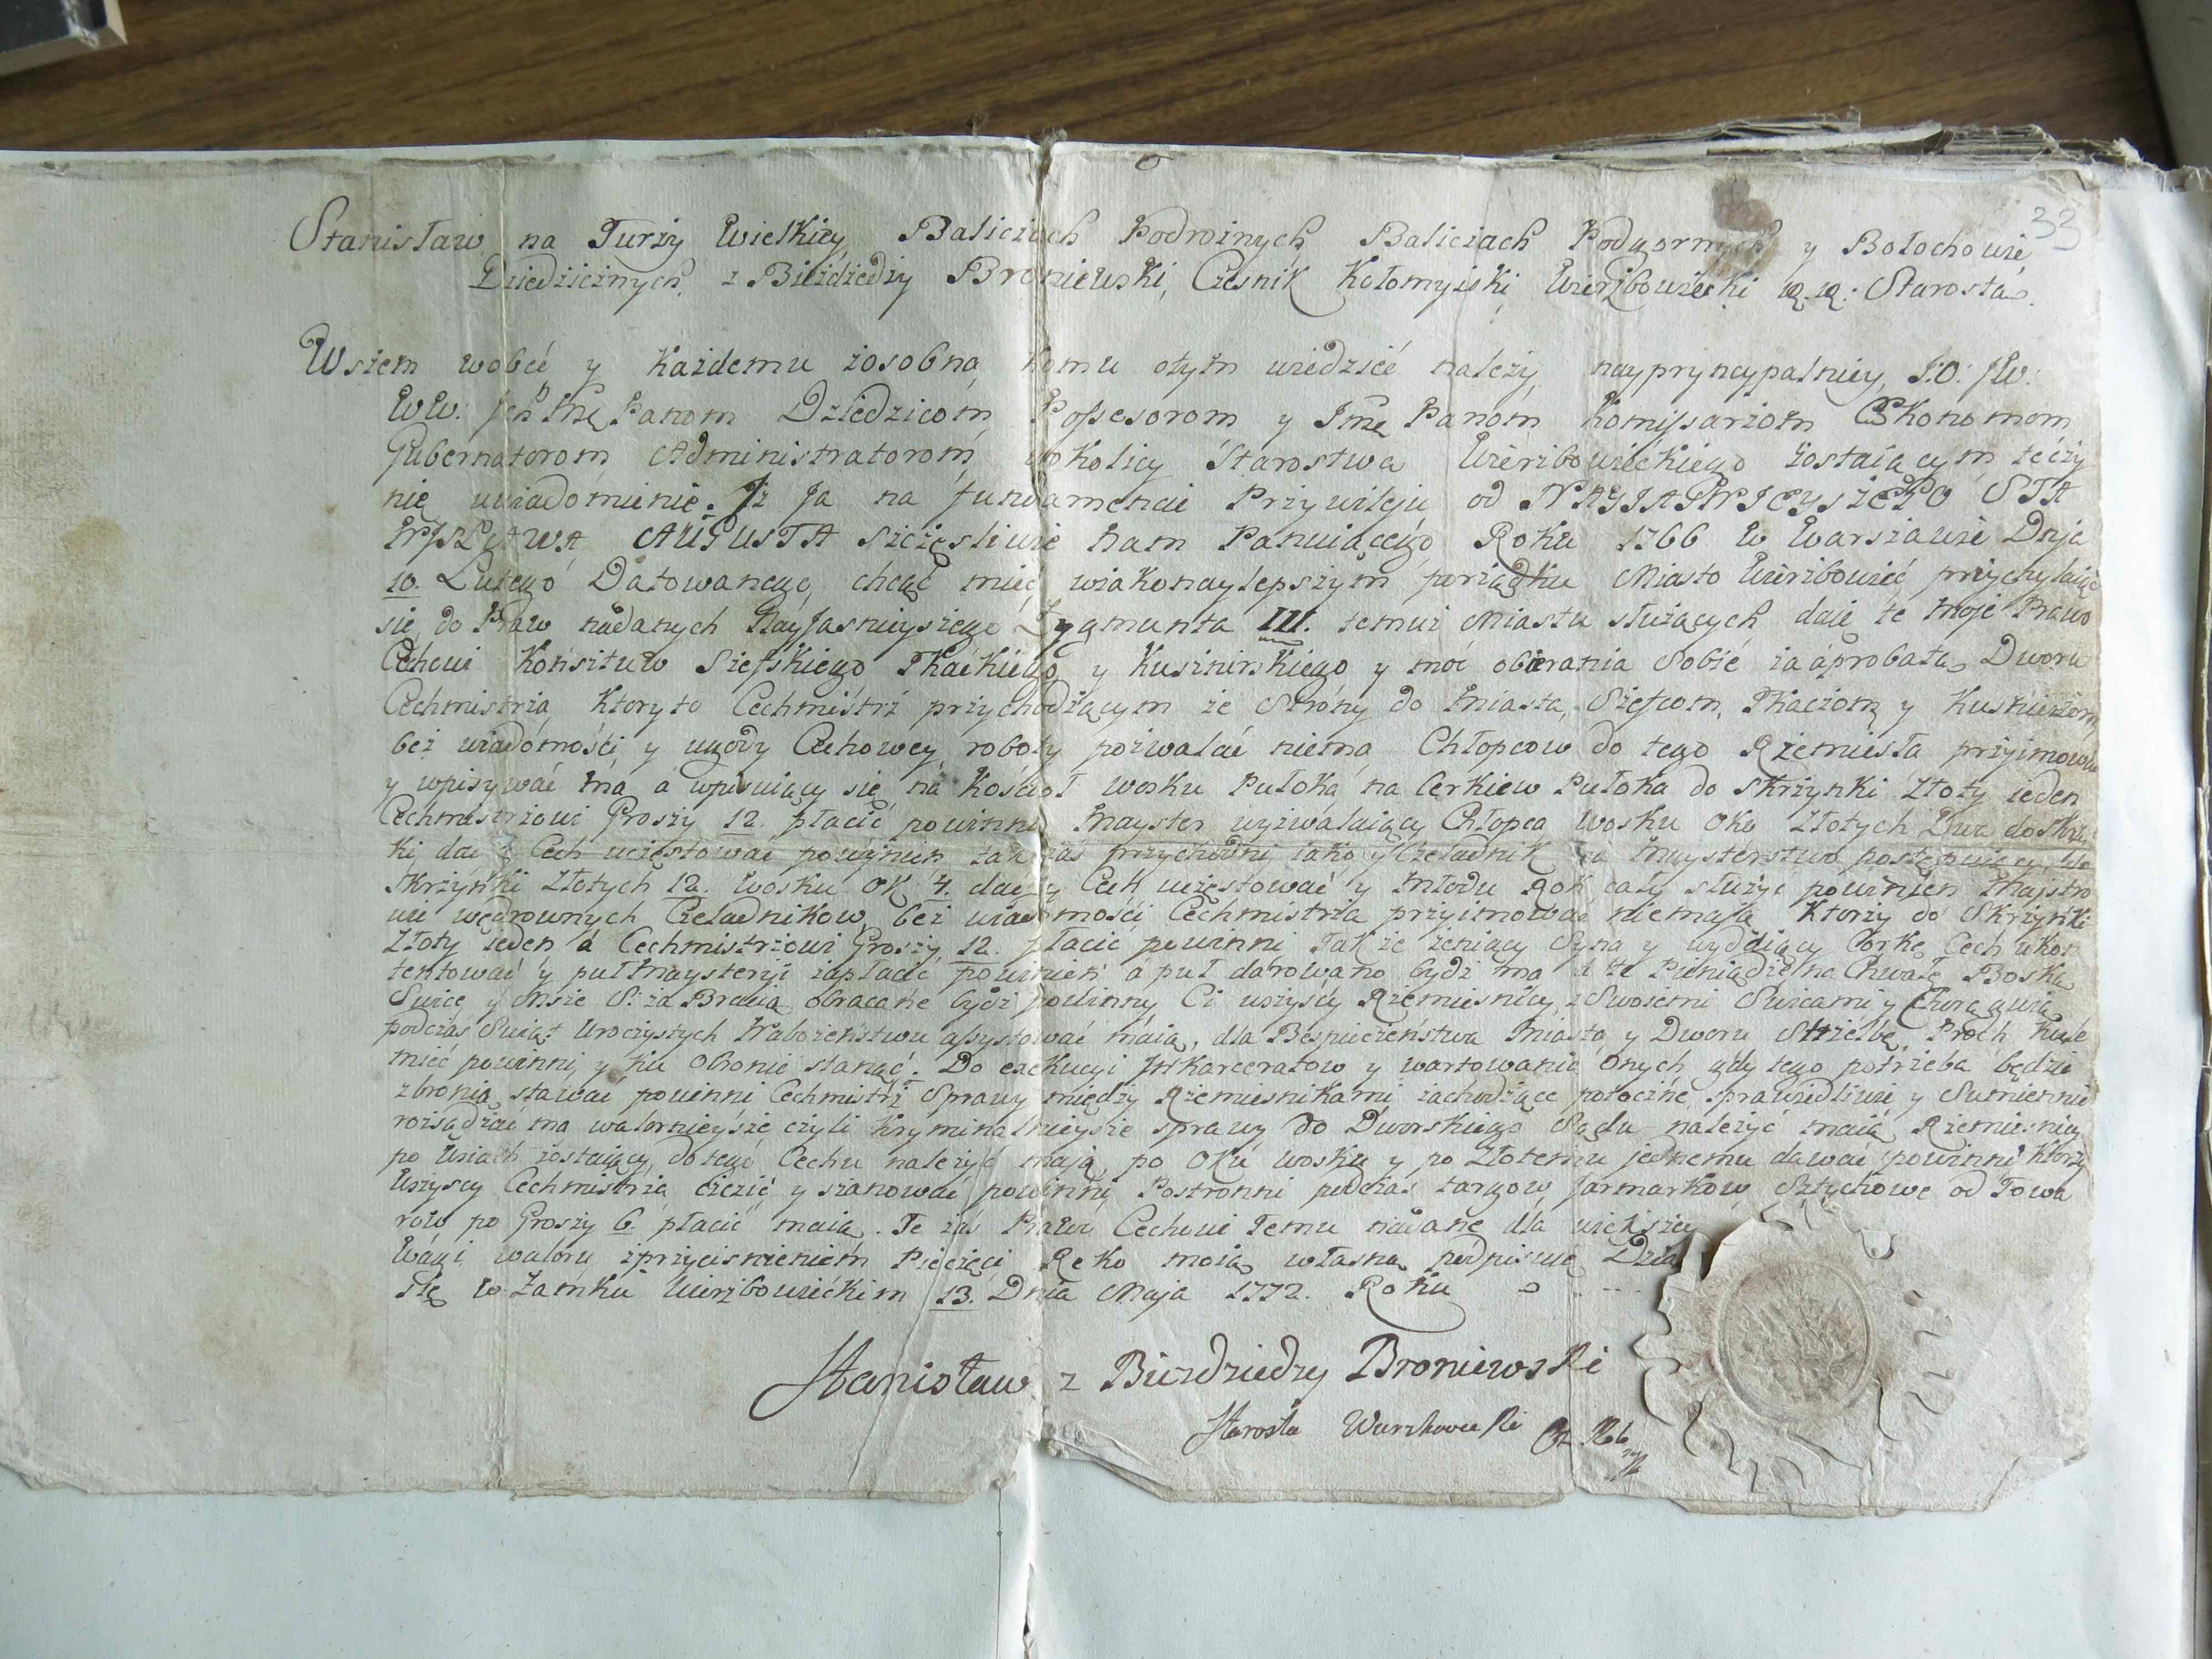 33
Stanisław na Turży Wielkiey Baliciach Podroznych Baliciach Podgornych y Bołochowie
Dziedzicznych, z Bieździedży Broniewski, Cześnik Kołomyiski Wierzbowiecki Starosta.
Wszem wobec y Każdemu zosobna komu otym wiedzieć należy naypryncypalniey, J:O: JW:
WW: Panom Dziedzicom Possesorom y Jmę Panom Komissarzom Ekonomom
Gubernatorom Administratorom wokolicy Starostwa Wierzbowieckiego Zostaiącym teczy
nię uwiadomienie. Iż Ja na fundamencie Przywileju od NAYJAŚNIEYSZEGO STA
NISŁAWA AUGUSTA szczęśliwie nam Panuiącego Roku 1766 w Warszawie Dnia
10. Lutego Datowanego, chcąc mieć wiakonaylepszym porządku Miasto Wierzbowiec przychylaiąc
się do Praw nadanych Nayjasnieyszego Zygmunta III. temuż Miastu służących daię te moje Prawo
Cechowi Konsztuw Szefskiego Tkackiego y Kusznirskiego y moc obierania Sobie za aprobatą Dworu
Cechmistrza, Ktoryto Cechmistrz przychodzącym ze Strony do Miasta, Szefcom, Tkaczom y Kusnierzom,
bez wiadomości y ugody Cechowey roboty pozwalać niema Chłopcow do tego Rzemiesła przyimować
y wpisywać ma, a wpisuiący się na Kościoł wosku Pułoka na Cerkiew Pułoka do Skrzynki Złoty ieden
Cechmistrzowi Groszy 12. płacić powinny Mayster wyzwalaiący Chłopca Wosku Oko Złotych Dwa do Skrzyn
ki dać y Cech uczęstować powinien także przychodni iako y Czeladnik na Maysterstwo postępuiący do
Skrzynki Złotych 12. Wosku Ok 4. dać y Cech uczęstować y Młodu Rok cały służyć powinien Maistro
wie wędrownych Czeladnikow, bez wiadomości Cechmistrza przyimować niemaią Ktorzy do Skrzynki
Złoty ieden a Cechmistrzowi Groszy 12. płacić powinni Także żeniący Syna y wydaiący Corkę Cech ukon
tentować y puł Maysteryi zapłacić powinien a puł darowano bydz ma a te Pieniądze na Chwałę Boską
Swice y Msze S: za Bracią obracane bydz powinny Ci wszyscy Rzemiesnicy z Swoiemi Swicami y Chorągwią
podczas Swiąt Uroczystych Nabożeństwu assystować maią, dla Bespieczeństwa Miasta y Dworu Strzelbę, Proch Kule
mieć powinni y ku Obronie stanąć. Do exekucyi Inkarceratow y wartowanie Onych gdy tego potrzeba będzie
z bronią stawać powinni Cechmistrz Sprawy między Rzemiesnikami zachodzące potoczne sprawiedliwie y Sumiennie
rozsądzać ma walornieysze czyli Kryminalnieysze sprawy do Dworskiego Sądu należyć maią Rzemiesnicy
po Wsiach zostaiący do tego Cechu należyć mają, po Oku wosku y po Złotemu jednemu dawać powinni Ktorzy
Wszyscy Cechmistrza czcić y szanować powinni Postronni podczas targow Jarmarkow Sztychowe od Towa
row po Groszy 6. płacić maią. Te zas Prawo Cechowi temu nadane dla większey
Wagi waloru z przycisnieniem Pieczęci Ręką moią własną podpisuię Dzia
łę w Zamku Wierzbowieckim 13. Dnia Maja 1772. Roku
Stanisław z Bieździedzy Broniewski
Starosta